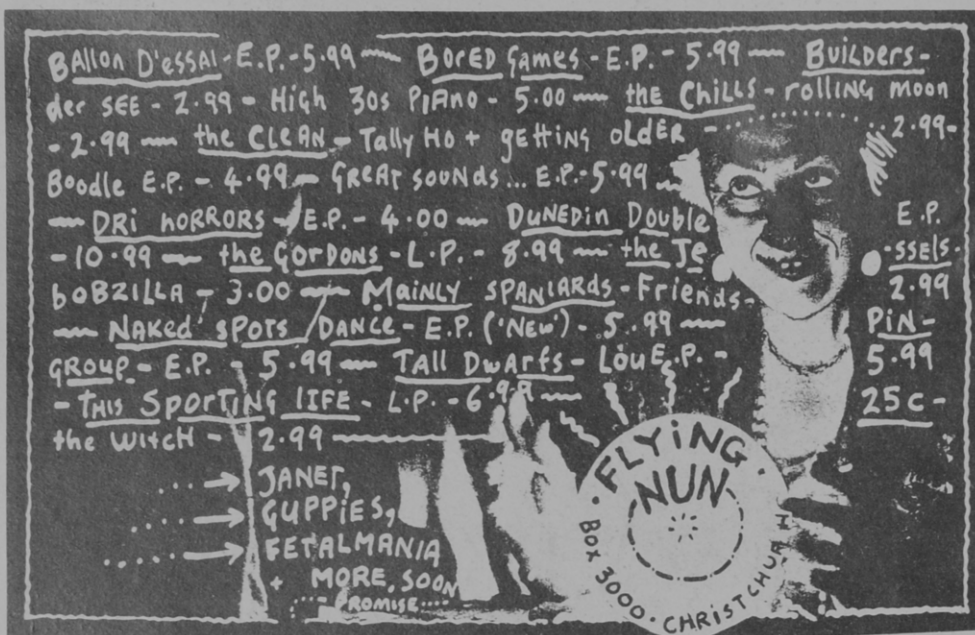 BAllon D'essai - E.P. - 5.99 ~ BOREd GAMES - E.P. - 5.99 ~ BUILDERS -
der SEE - 2.99 - HIGH 30s PIAno - 5.00 ~ the CHILLS - rolling moon
- 2.99 ~ the CLEAN - Tally Ho + gEtting oldER - .......... 2.99 -
Boodle E.P. - 4.99 - GREAT sounds... E.P. - 5.99 ~
~ DRI hORRORS - E.P. - 4.00 ~ DUNEDIN DoublE E.P.
- 10.99 ~ the GORDONS - L.P. - 8.99 ~ the JE -SSELS -
bOBZILLA - 3.00 ~ MAINLY SPANIARDS - FriEnds - 2.99
~ NAKED SPOTS DANCE - E.P. ('NEW') - 5.99 ~ PiN -
GROUP - E.P. - 5.99 ~ TALL DWARFS - LOUE.P. - 5.99
- THIS SPORTING LIFE - L.P. - 6.99 ~ 25c -
the WITCH - 2.99
... → JANET,
.... → GUPPIES,
..... → FETALMANIA
+ MORE, SOON
.... PROMISE ....
FLYiNG
NUN
BOX 3000 · CHRISTCHURCH